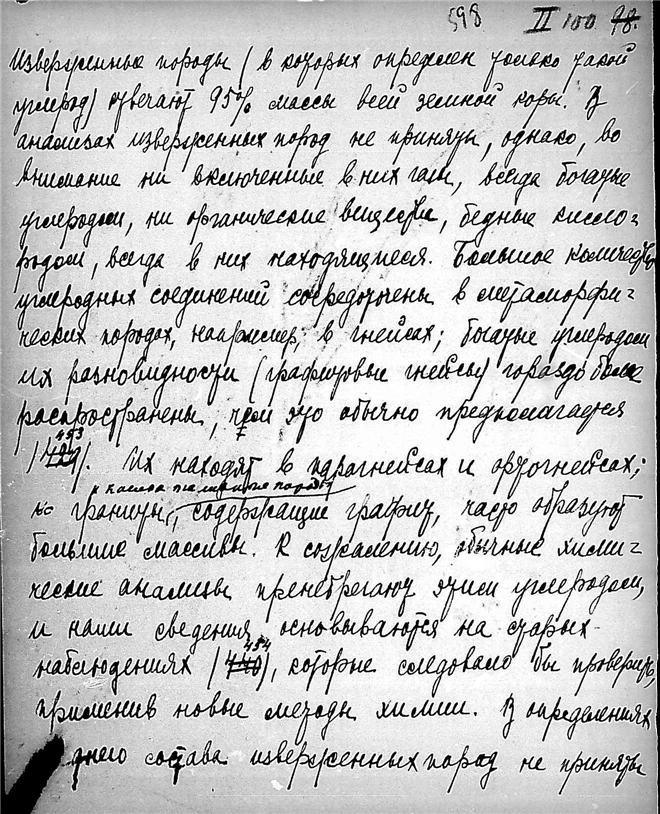 598 II 100 98.
Изверженные породы (в которых определен только такой
углерод) отвечают 95% массы всей земной коры. В
анализах изверженных пород не приняты, однако, во
внимание ни включенные в них газы, всегда богатые
углеродом, ни органические вещества, бедные кисло-
родом, всегда в них находящиеся. Большое количество
углеродных соединений сосредоточены в метаморфи-
ческих породах, например, в гнейсах; богатые углеродом
их разновидности (графитовые гнейсы) гораздо более
распространены, чем это обычно предполагается
453
(429). Их находят в парагнейсах и ортогнейсах;
и кислые
граниты, содержащие графит, часто образуют
большие массивы. К сожалению, обычные хими-
ческие анализы пренебрегают этим углеродом,
и наши сведения основываются на старых
454
наблюдениях (430), которые следовало бы проверить,
применив новые методы химии. В определениях
днего состава изверженных пород не приняты